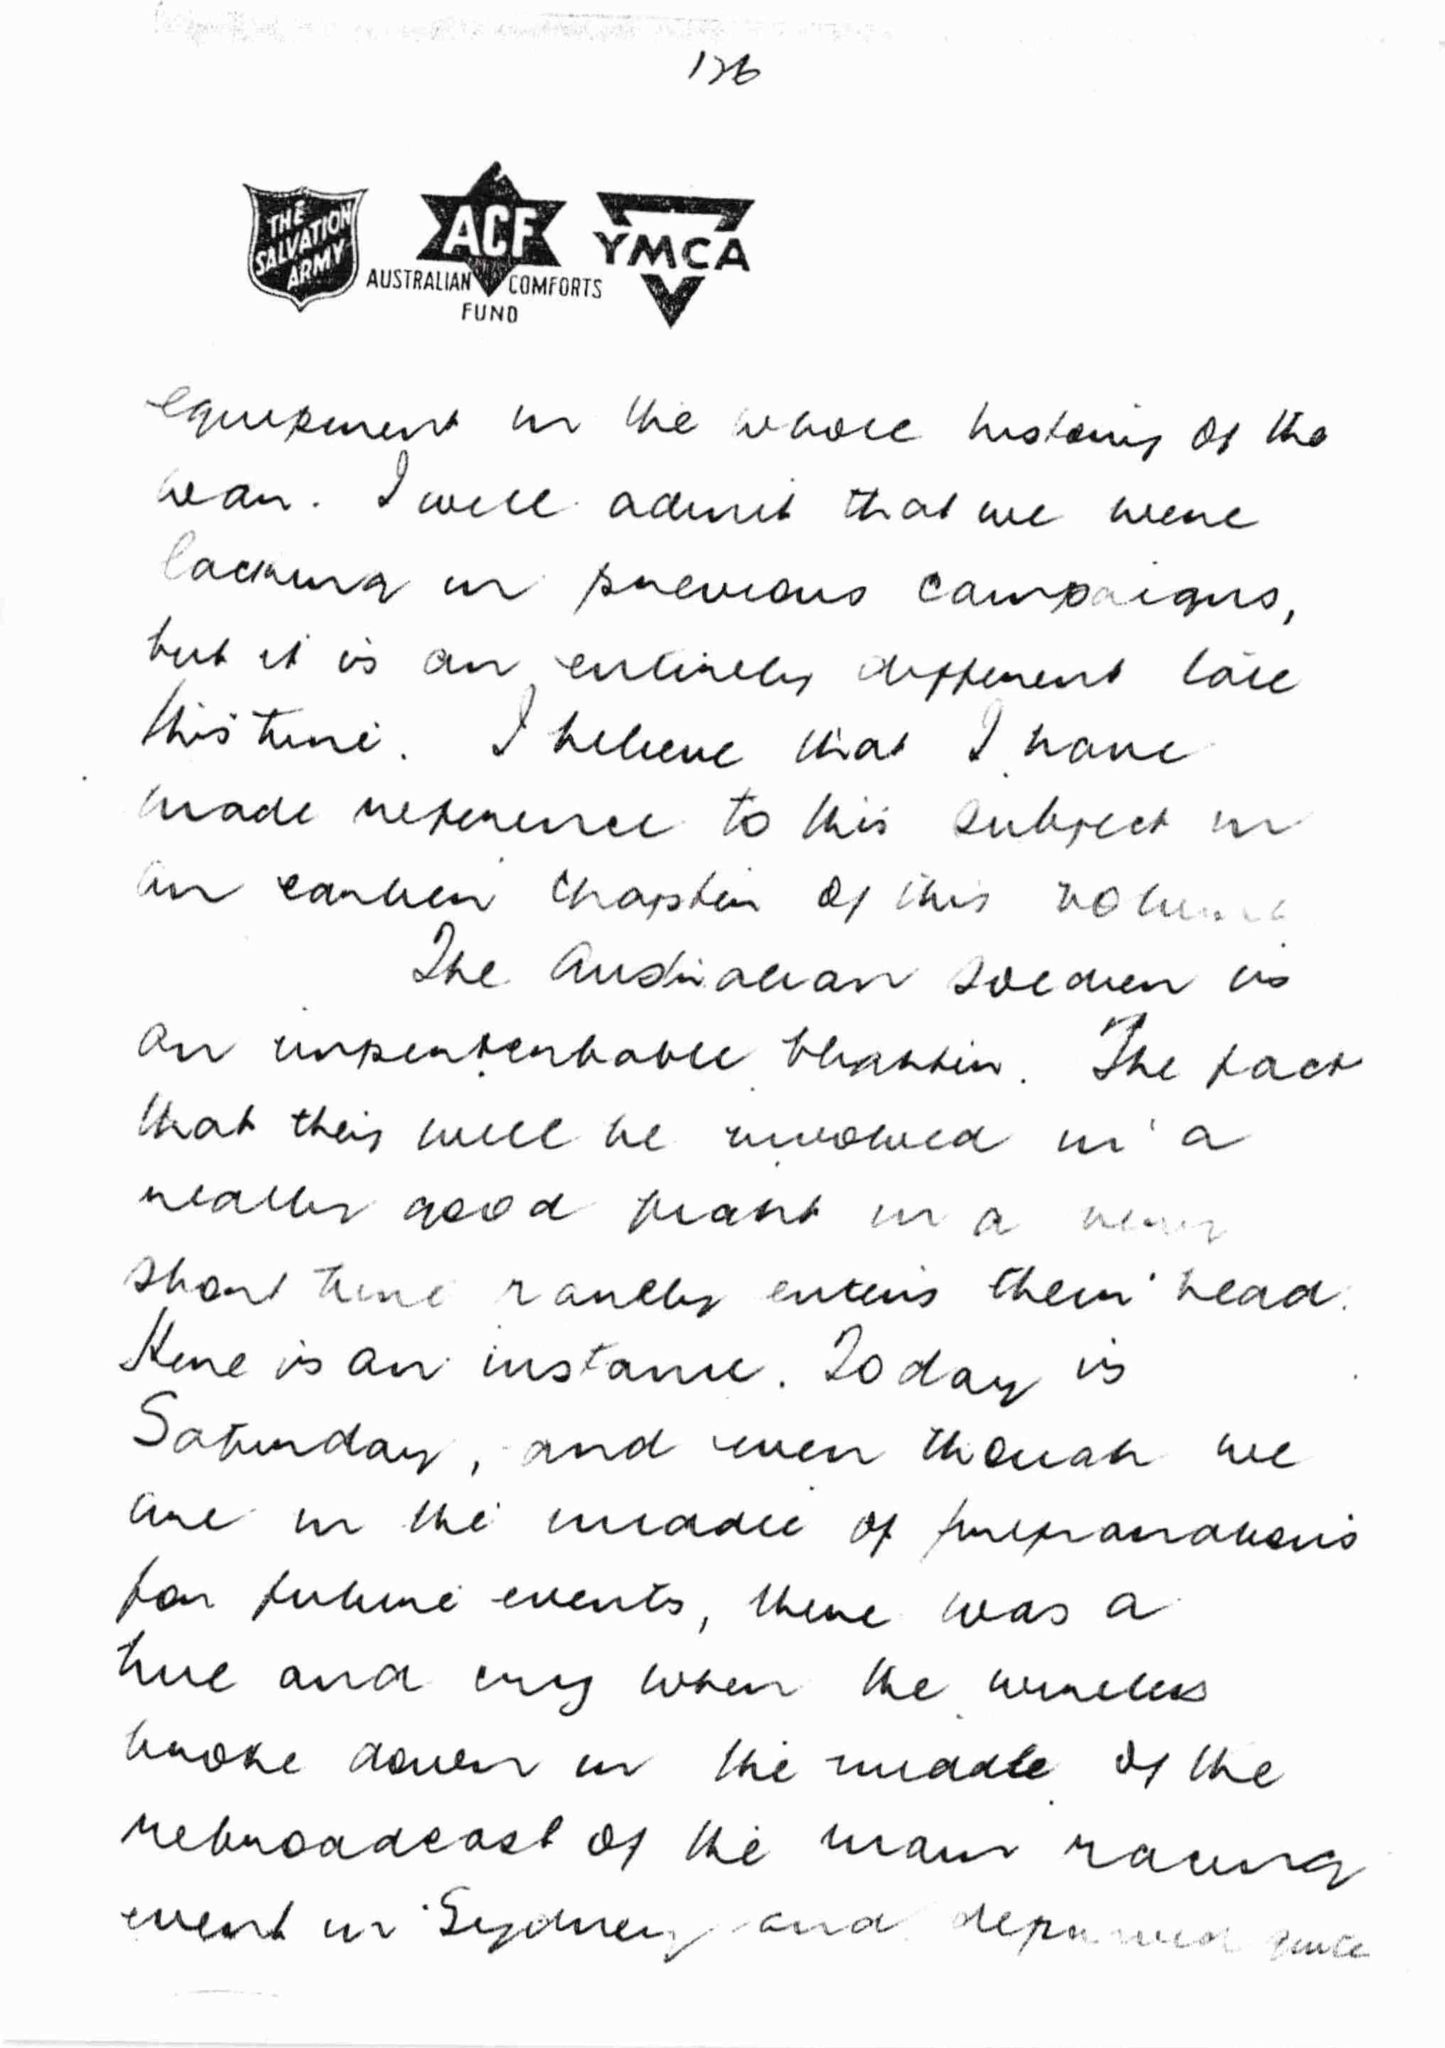 126
THE
SALVATION
ARMY
ACF
AUSTRALIAN COMFORTS
FUND
YMCA
equipment in the whole history of the
war. I will admit that we were
lacking in previous campaigns,
but it is an entirely different tale
this time. I believe that I have
made reference to this subject in
an earlier chapter of this volume
The Australian soldier is
an imperturbable blighter. The fact
that they will be involved in a
really good fight in a very
short time rarely enters their head.
Here is an instance. Today is
Saturday, and even though we
are in the middle of preparations
for future events, there was a
hue and cry when the wireless
broke down in the middle of the
rebroadcast of the main racing
event in Sydney and deprived quite